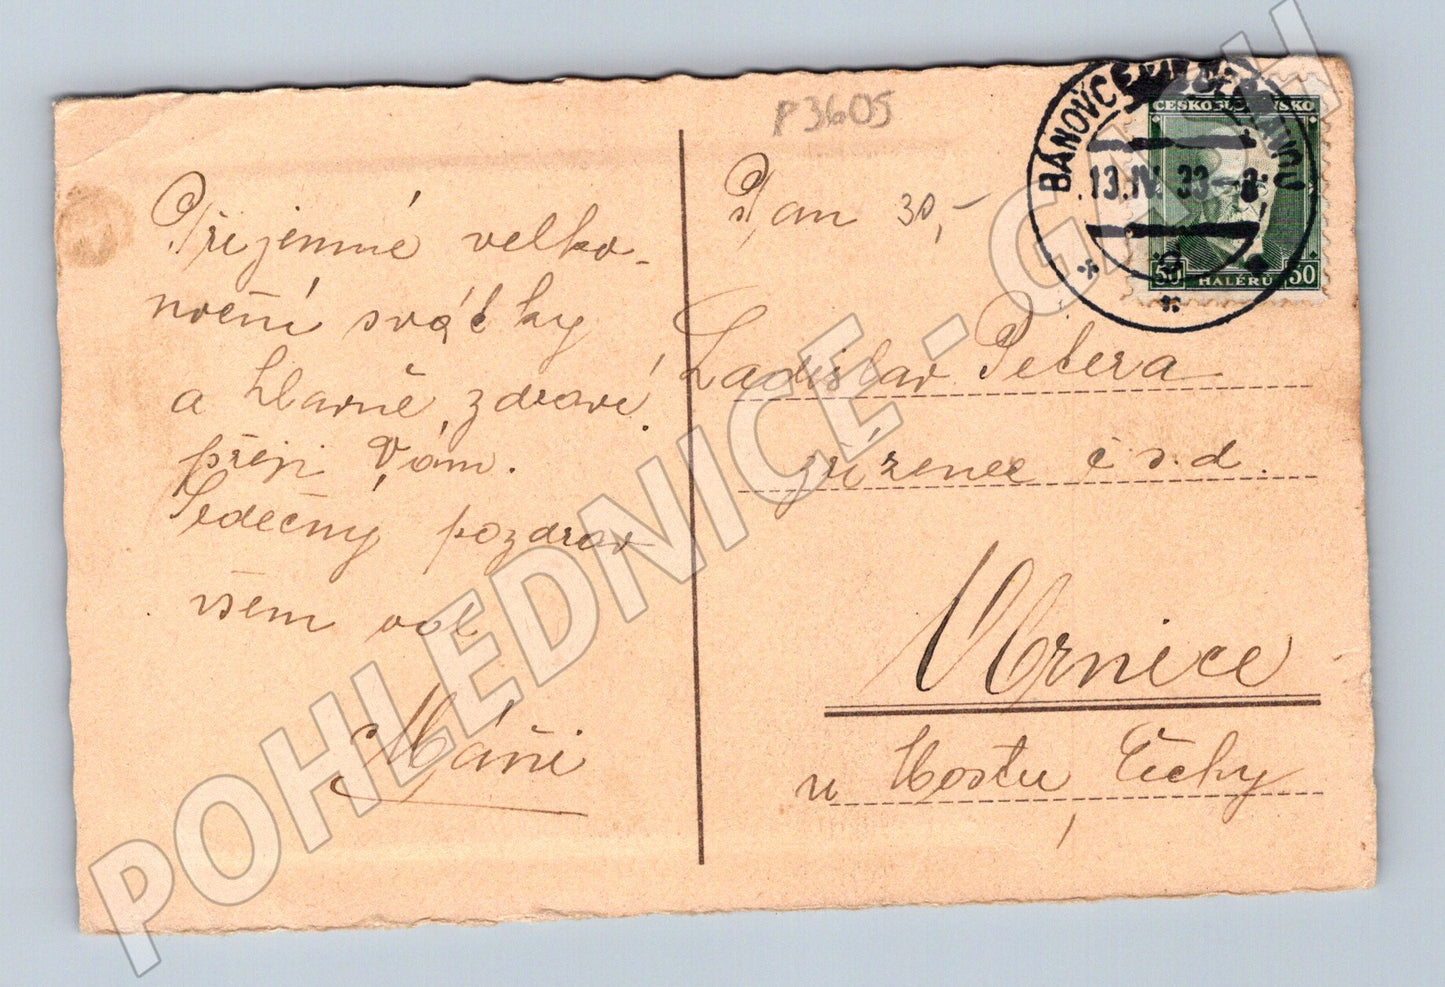 P3605
Příjemné velko-
noční svátky
a hlavně zdraví
přeji Vám.
Srdečný pozdrav
všem od
Máni
Pan 30,-
Ladislav Petera
zřízenec č s.d.
Obrnice
u Mostu, Čechy
BÁNOVCE NAD BEBRAVOU
13.IV.33-8
ČESKOSLOVENSKO
50 HALÉŘŮ 50
POHLEDNICE - GALASH